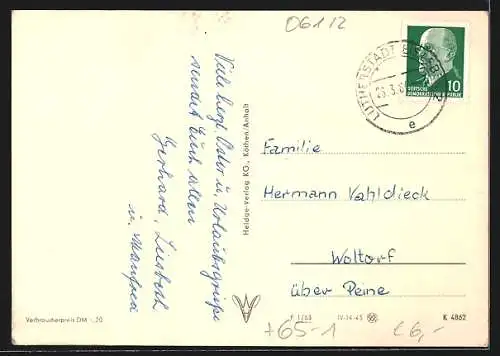 06112
LUTHERSTADT EISLEBEN 2
e
DEUTSCHE
DEMOKRATISCHE REPUBLIK
10
Viele herzl. Oster u. Urlaubsgrüße
sendet Euch allen
Gerhard, Liesbeth
u. Manfred
Heldge-Verlag KG., Köthen/Anhalt
Familie
Hermann Vahldieck
Woltorf
über Peine
Verbraucherpreis DM -,20
P 1/63 IV-14-45 K 4862
+65-1 €6,-